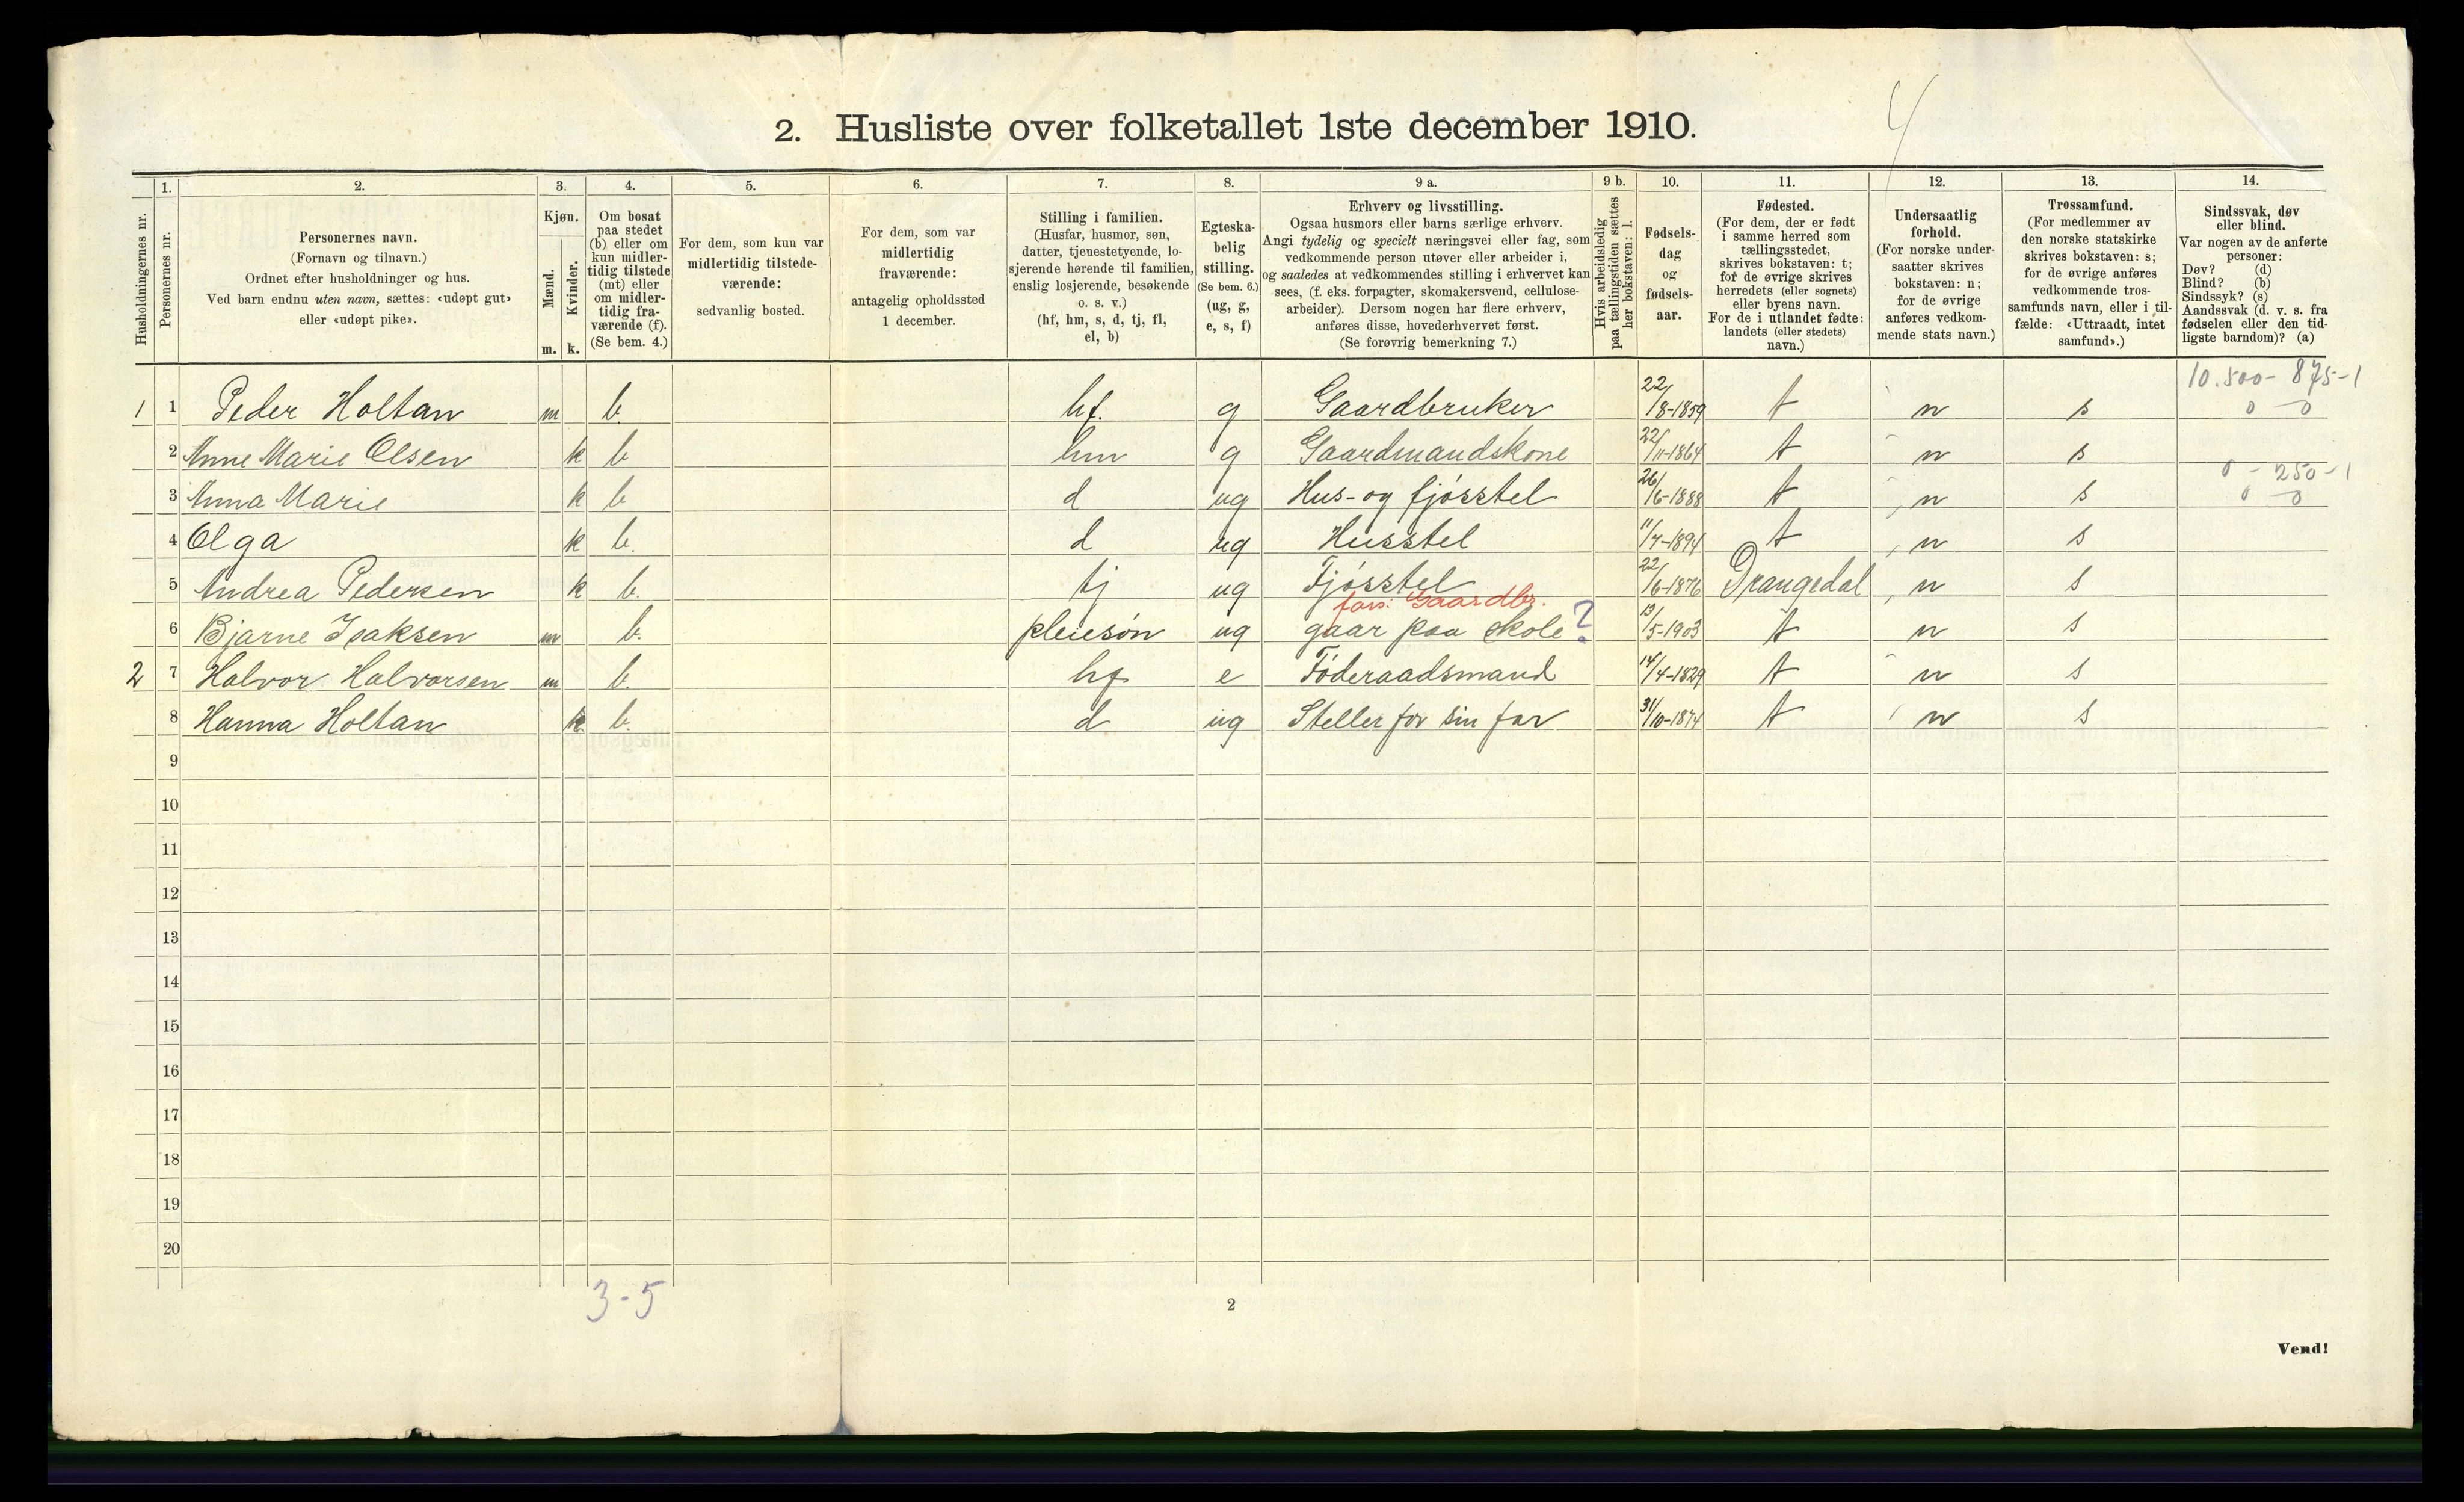 4
2. Husliste over folketallet 1ste december 1910.
Husholdningernes nr.
1.
Personernes nr.
2.
Personernes navn.
(Fornavn og tilnavn.)
Ordnet efter husholdninger og hus.
Ved barn endnu uten navn, sættes: «udøpt gut»
eller «udøpt pike».
3.
Kjøn.
Mænd.
Kvinder.
m. k.
4.
Om bosat
paa stedet
(b) eller om
kun midler-
tidig tilstede
(mt) eller
om midler-
tidig fra-
værende (f).
(Se bem. 4.)
5.
For dem, som kun var
midlertidig tilstede-
værende:
sedvanlig bosted.
6.
For dem, som var
midlertidig
fraværende:
antagelig opholdssted
1 december.
7.
Stilling i familien.
(Husfar, husmor, søn,
datter, tjenestetyende, lo-
sjerende hørende til familien,
enslig losjerende, besøkende
o. s. v.)
(hf, hm, s, d, tj, fl,
el, b)
8.
Egteska-
belig
stilling.
(Se bem. 6.)
(ug, g,
e, s, f)
9 a.
Erhverv og livsstilling.
Ogsaa husmors eller barns særlige erhverv.
Angi tydelig og specielt næringsvei eller fag, som
vedkommende person utøver eller arbeider i,
og saaledes at vedkommendes stilling i erhvervet kan
sees, (f. eks. forpagter, skomakersvend, cellulose-
arbeider). Dersom nogen har flere erhverv,
anføres disse, hovederhvervet først.
(Se forøvrig bemerkning 7.)
9 b.
Hvis arbeidsledig
paa tællingstiden sættes
her bokstaven: l.
10.
Fødsels-
dag
og
fødsels-
aar.
11.
Fødested.
(For dem, der er født
i samme herred som
tællingsstedet,
skrives bokstaven: t;
for de øvrige skrives
herredets (eller sognets)
eller byens navn.
For de i utlandet fødte:
landets (eller stedets)
navn.)
12.
Undersaatlig
forhold.
(For norske under-
saatter skrives
bokstaven: n;
for de øvrige
anføres vedkom-
mende stats navn.)
13.
Trossamfund.
(For medlemmer av
den norske statskirke
skrives bokstaven: s;
for de øvrige anføres
vedkommende tros-
samfunds navn, eller i til-
fælde: «Uttraadt, intet
samfund».)
14.
Sindssvak, døv
eller blind.
Var nogen av de anførte
personer:
Døv? (d)
Blind? (b)
Sindssyk? (s)
Aandssvak (d. v. s. fra
fødselen eller den tid-
ligste barndom)? (a)
10.500 - 875-1
1 1 Peder Holtan m b. hf. g Gaardbruker 22/8-1859 t n s 0 - 0
2 Anne Marie Olsen k b hm g Gaardmandskone 22/11-1864 t n s
0 - 250-1
3 Anna Marie k b d ug Hus- og fjøsstel 26/6-1888 t n s 0 - 0
4 Olga k b. d ug Husstel 11/7-1894 t n s
5 Andrea Pedersen k b. tj ug Fjøsstel 22/6-1876 Drangedal n s
fors. Gaardbr.
6 Bjarne Isaksen m b. pleiesøn ug gaar paa skole ? 13/5-1903 t n s
2 7 Halvor Halvorsen m b. hf e Føderaadsmand 14/4-1829 t n s
8 Hanna Holtan k b. d ug Steller for sin far 31/10-1874 t n s
9
10
11
12
13
14
15
16
17
18
19
20
3-5
2
Vend!